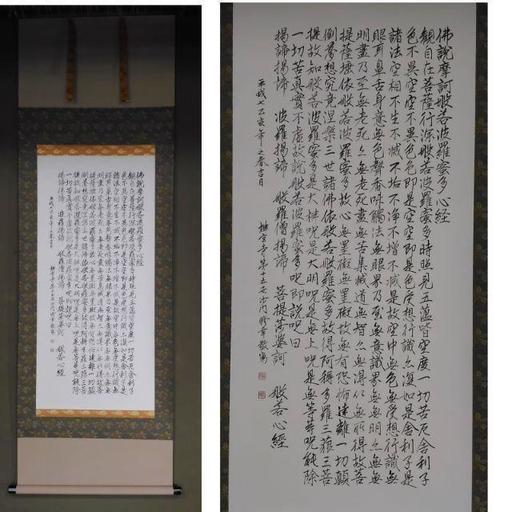 佛說摩訶般若波羅蜜多心經
觀自在菩薩行深般若波羅蜜多時照見五蘊皆空度一切苦厄舍利子
色不異空空不異色色即是空空即是色受想行識亦復如是舍利子是
諸法空相不生不滅不垢不淨不增不減是故空中無色無受想行識無
眼耳鼻舌身意無色聲香味觸法無眼界乃至無意識界無無明亦無無
明盡乃至無老死亦無老死盡無苦集滅道無智亦無得以無所得故菩
提薩埵依般若波羅蜜多故心無罣礙無罣礙故無有恐怖遠離一切顛
倒夢想究竟涅槃三世諸佛依般若波羅蜜多故得阿耨多羅三藐三菩
提故知般若波羅蜜多是大神呪是大明呪是無上呪是無等等呪能除
一切苦真實不虛故說般若波羅蜜多呪即說呪曰
揭諦揭諦 波羅揭諦 般羅僧揭諦 菩提薩婆訶 般若心經
平成七乙亥年之春吉日